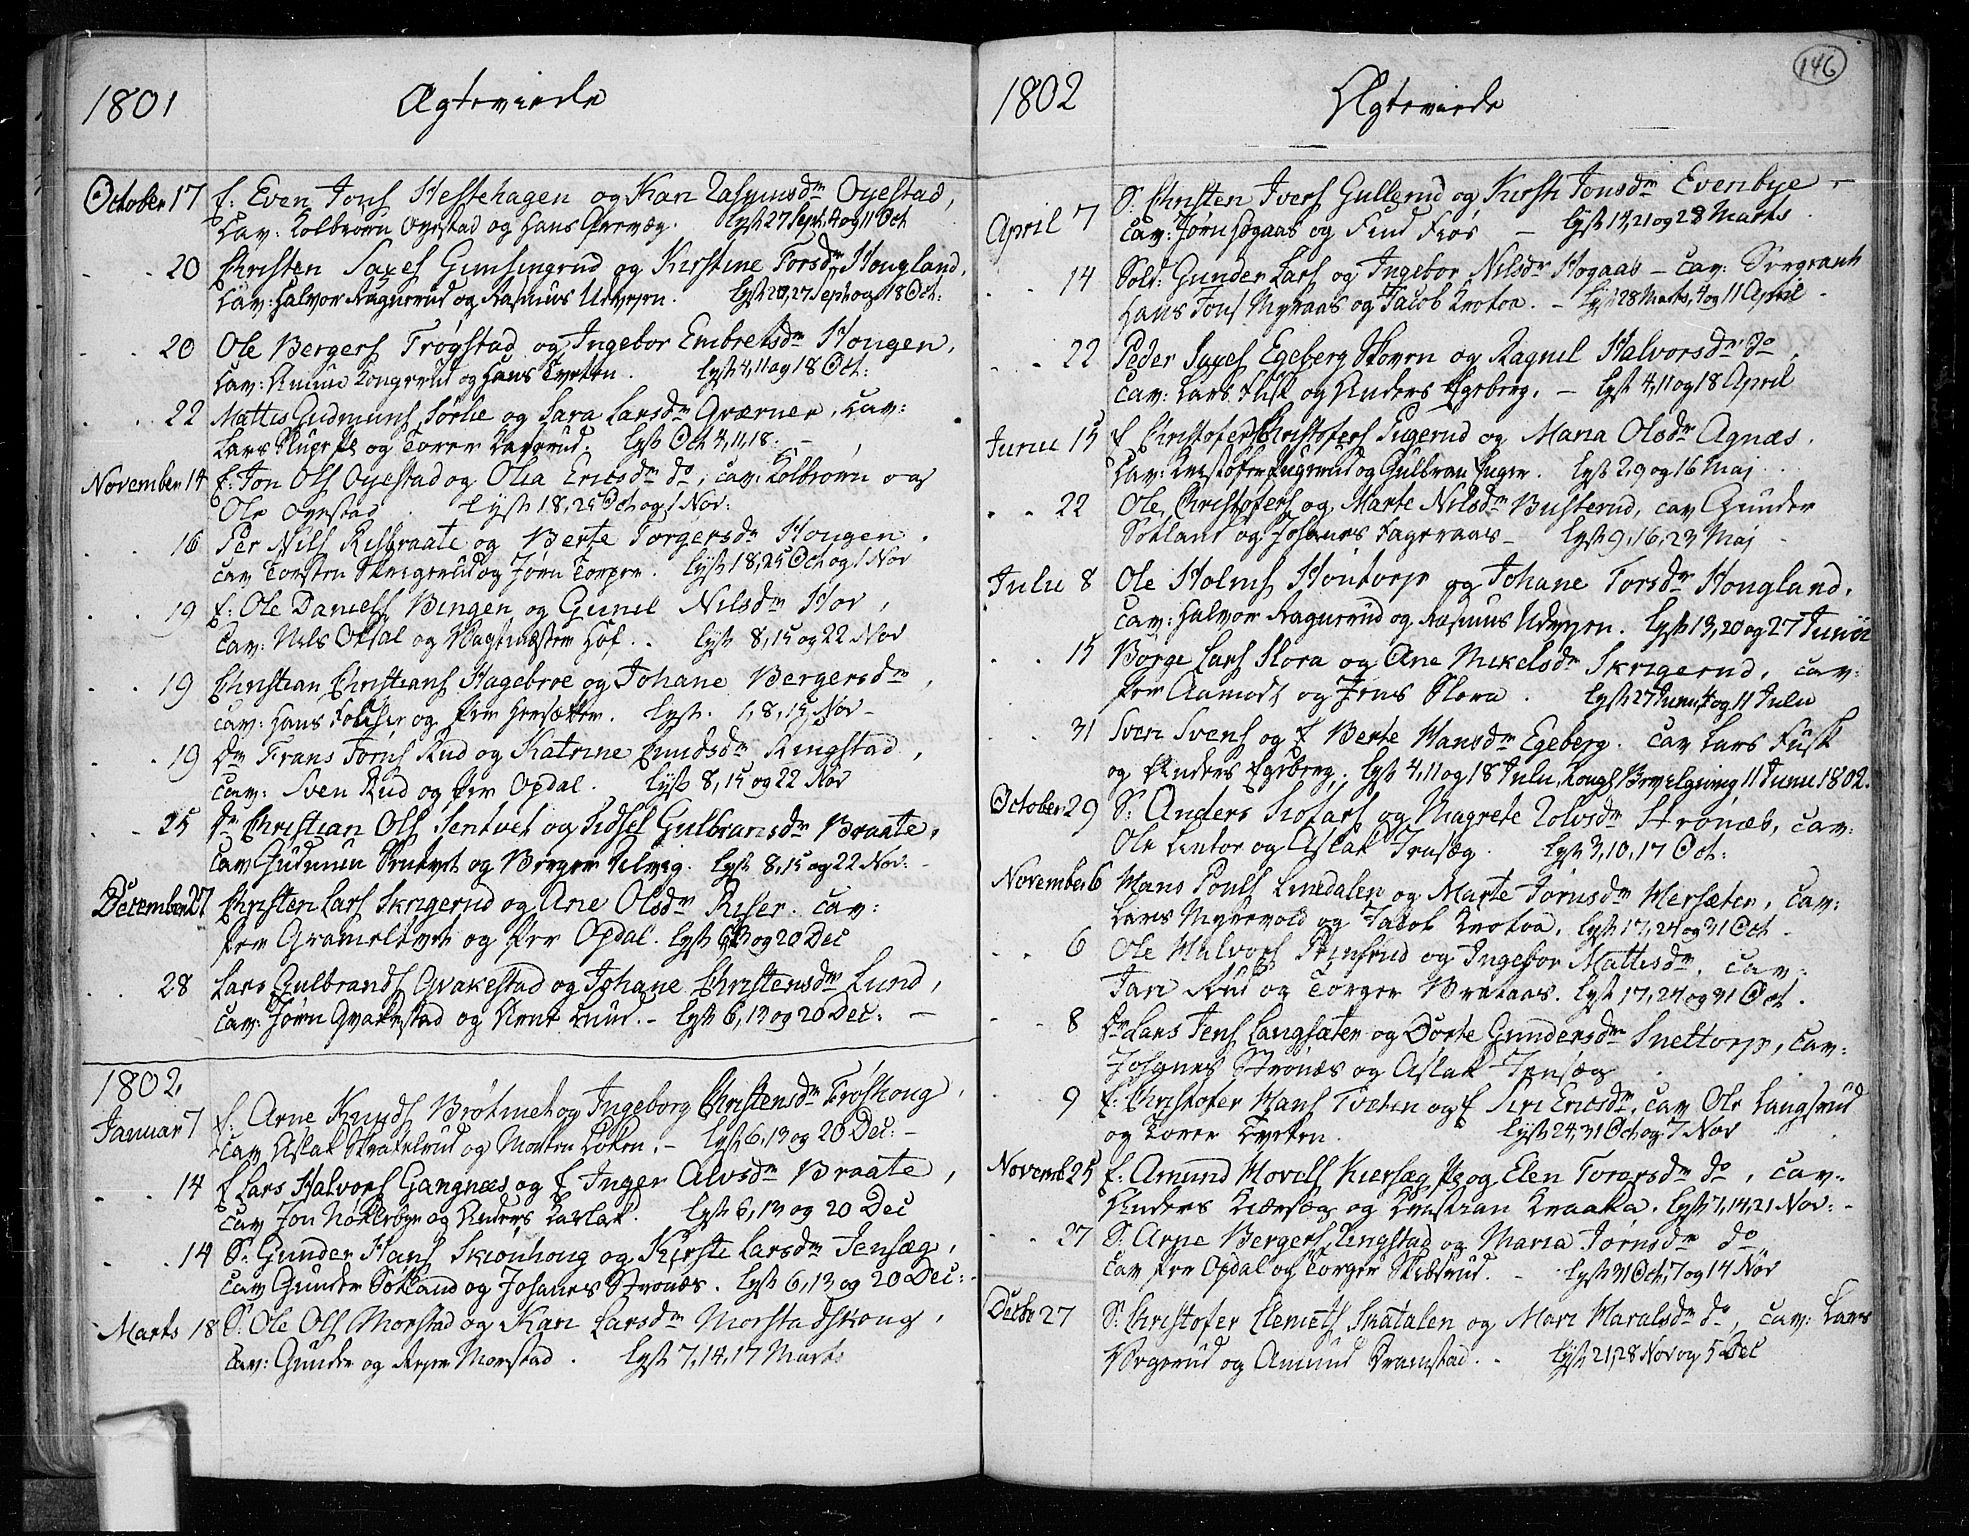 1801 Ægteviede
October 17 f: Even Jons Hestehagen og Kari Rasmusdr Oyestad,
Cav: Kolbiørn Oyestad og Hans lyst 27 Sept. 4 og 11 Oct
20 Christen Gimsingrud og Kirstine Torsdr Hougland,
Cav: Halvor Ragnerud og Rasmus lyst 20, 27 Sept og 18 Oct:
20 Ole Bergers Trøgstad og Ingebor Embretsdr Hougen,
Cav: og Hans Tveten. lyst 4, 11 og 18 Oct:
22 Mattis Gudmuns Sørlie og Sara Larsdr Qværner, Cav:
Lars og Torer lyst Oct 4, 11, 18.
November 14 f: Jon Ols Oyestad og Olea Ericsdr do, cav: Kolbiørn og
Ole Oyestad lyst 18, 25 Oct og 1 Nov:
16 Per Nils Risbraate og Berte Torgersdr Hougen.
cav Torsten Skrigerud og Jørn Torper. lyst 18, 25 Oct og 1 Nov
19 f: Ole Daniels Bingen og Gunil Nilsdr Hov,
Cav: Nils Opsal og Hof. lyst 8, 15 og 22 Nov
19 Christian Christians Hagebroe og Johane Bergersdr,
cav: Hans og Per Hersæter. lyst. 1, 8, 15, Nov
19 Dr Frans Jørns Rud og Katrine Cnudsdr Ringstad,
cav: Sven Rud og Per Opdal. lyst 8, 15 og 22 Nov
25 Dr Christian Ols Sentvet og Sidsel Gulbransdr Braate,
Cav Gudmun og Berger lyst 8, 15 og 22 Nov.
December 27 Christen Lars Skrigerud og Ane Olsdr Riser. cav:
Per og Per Opdal. lyst 6, 13 og 20 Dec
28 Lars Gulbrands Qvakestad og Johane Christensdr Lund,
cav: Jørn Qvakestad og Arne Lund. lyst 6, 13 og 20 Dec:
1802
Januar 7 f: Arne Knuds Brøtmet og Ingeborg Christensdr Froshoug,
cav Aslak og Morten Løken. lyst 6, 13 og 20 Dec:
14 f Lars Halvors Gangnæs og f Inger Alvsdr Braate,
cav Jon Noklebye og Anders lyst 6, 13 og 20 Dec
14 S: Gunder Hans Skiønhoug og Kirsti Larsdr Jensæg,
cav Gunder Søtland og Johanes Strønæs. lyst 6, 13 og 20 Dec:
Marts 18 S: Ole Ols Morstad og Kari Larsdr Morstadskoug,
Cav: Gunder og Morstad. lyst 7, 14, 17 Marts
146
1802 Ægteviede
April 7 S: Christen Ivers Gullerud og Kirsti Jonsdr Evenbye,
cav: Jørn og Find lyst 14, 21 og 28 Marts
14 Sold: Gunder Lars og Ingebor Nilsdr Hogaas – cav: Sergeant
Hans Jons Myraas og Jacob Krotoa. – lyst 28 Marts, 4 og 11 April
22 Peder Egeberg Skoven og Ragnil Halvorsdr do,
Cav: Lars Fusk og Anders Egeberg. – lyst 4, 11 og 18 April
Junii 15 f Christofer Christofers Sugerud og Maria Olsdr Agnæs.
Cav: Kristofer Sugerud og Gulbran lyst 2, 9 og 16 Maj
22 Ole Christofers og Marte Nilsdr Busterud, cav Gunder
Sotland og Johanes Fageraas – lyst 9, 16, 23 Maj
Julii 8 Ole Holms Hontorp og Johane Torsdr Hougland,
Cav: Halvor Ragnerud og Rasmus lyst 13, 20 og 27 Junii
15 Børge Lars Slora og Ane Mikelsdr Skrigerud, cav:
Per Aamodt og Jens Slora. lyst 27 Junii, 4 og 11 Julii
31 Sven Svens og f Berte Hansdr Egeberg. cav Lars Fusk
og Anders Egeberg. lyst 4, 11 og 18 Julii, Kongl Bevilgning 11 Junii 1802.
October 29 S: Anders og Magrete Rolvsdr Strønæs, cav:
Ole Kintor og Aslak Jensæg. lyst 3, 10, 17 Oct:
November 6 Hans Pouls Linedalen og Marte Jørnsdr Hersæter, cav:
Lars Myrevold og Jacob Krotoa. lyst 17, 24 og 31 Oct
6 Ole Halvors og Ingebor Mattisdr, cav:
Jan Rud og Torger Brataas. lyst 17, 24 og 31 Oct.
8 Dr Lars Jens Langsæter og Dorte Gundersdr Snettorp, cav:
Johanes Strønæs og Aslak Jensæg
9 f: Christofer Hans Tveten og f Siri Ericsdr, cav Ole Langsrud
og Torer Tveten. lyst 24, 31 Oct og 7 Nov
Novemb: 25 f: Amund Hovels Kiersæg og Elen Torersdr do, cav:
Anders Kiersæg og Kristian Kraaka. lyst 7, 14, 21 Nov:
27 S: Arne Bergers Ringstad og Maria Jørnsdr do
Cav Per Opdal og Torger Skibsrud. lyst 31 Oct, 7 og 14 Nov
Decbr 27 S: Christofer Clemets Skatalen og Mari Haralsdr do, cav: Lars
og Amund Bramstad. lyst 21, 28 Nov og 5 Dec